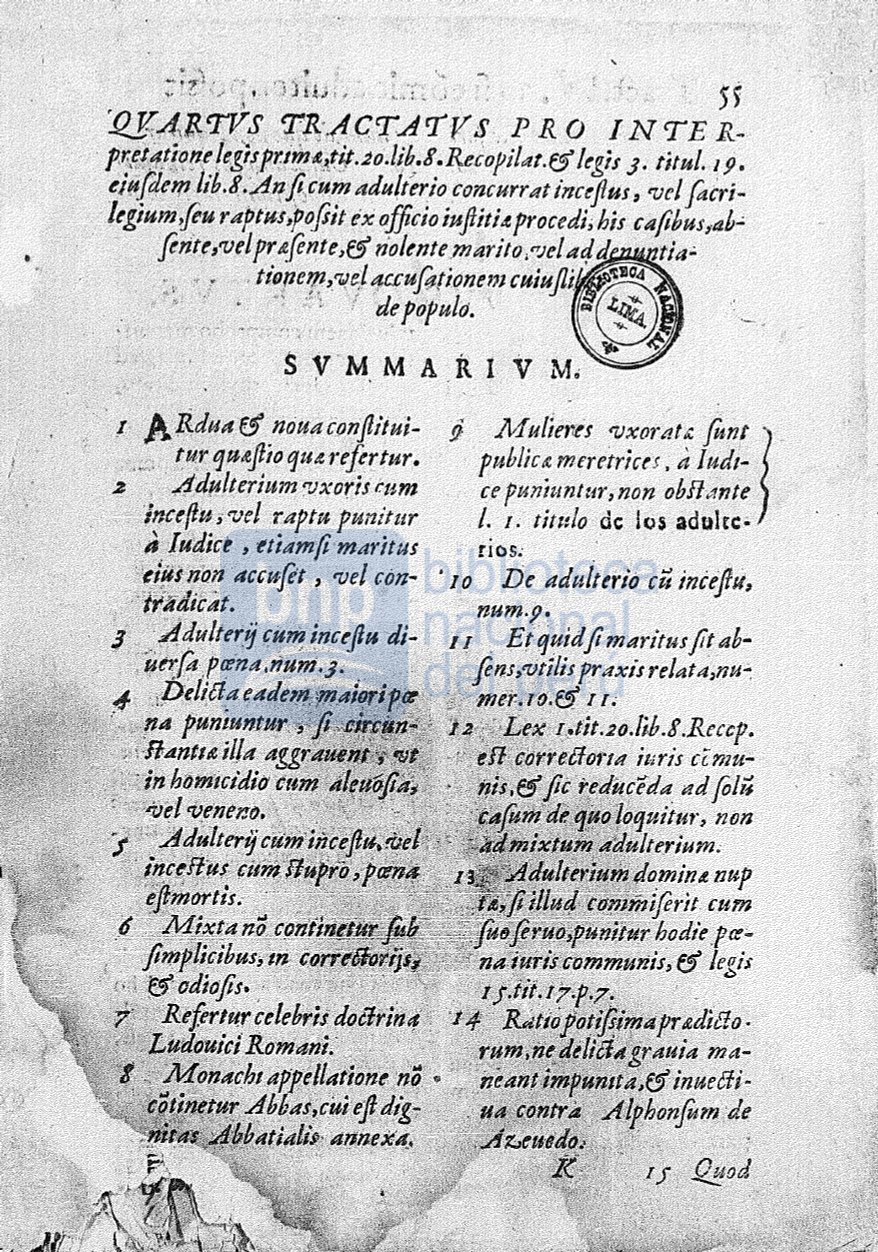 55
QVARTVS TRACTATVS PRO INTER-
pretatione legis primæ, tit. 20. lib. 8. Recopilat. & legis 3. titul. 19.
eiusdem lib. 8. An si cum adulterio concurrat incestus, vel sacri-
legium, seu raptus, possit ex officio iustitiæ procedi, his casibus, ab-
sente, vel præsente, & nolente marito, vel ad denuntia-
tionem, vel accusationem cuiuslib
de populo.
BIBLIOTECA NACIONAL
LIMA
SVMMARIVM.
1 ARdua & noua constitui-
tur quæstio quæ refertur.
2 Adulterium vxoris cum
incestu, vel raptu punitur
à Iudice, etiamsi maritus
eius non accuset, vel con-
tradicat.
3 Adulterij cum incestu di-
uersa pœna. num. 3.
4 Delicta eadem maiori pœ
na puniuntur, si circun-
stantiæ illa aggrauent, vt
in homicidio cum aleuosia,
vel veneno.
5 Adulterij cum incestu, vel
incestus cum stupro, pœna
est mortis.
6 Mixta nõ continetur sub
simplicibus, in correctorijs,
& odiosis.
7 Refertur celebris doctrina
Ludouici Romani.
8 Monachi appellatione nõ
cõtinetur Abbas, cui est dig-
nitas Abbatialis annexa.
9 Mulieres vxoratæ sunt
publicæ meretrices, à Iudi-
ce puniuntur, non obstante
l. 1. titulo de los adulte-
rios.
10 De adulterio cũ incestu,
num. 9.
11 Et quid si maritus sit ab-
sens, vtilis praxis relata, nu-
mer. 10. & 11.
12 Lex 1. tit. 20. lib. 8. Recop.
est correctoria iuris cõmu-
nis, & sic reducẽda ad solũ
casum de quo loquitur, non
ad mixtum adulterium.
13 Adulterium dominæ nup
tæ, si illud commiserit cum
suo seruo, punitur hodie pœ-
na iuris communis, & legis
15. tit. 17. p. 7.
14 Ratio potissima prædicto-
rum, ne delicta grauia ma-
neant impunita, & inuecti-
ua contra Alphonsum de
Azeuedo.
K 15 Quod
bnp biblioteca
nacional
del perú